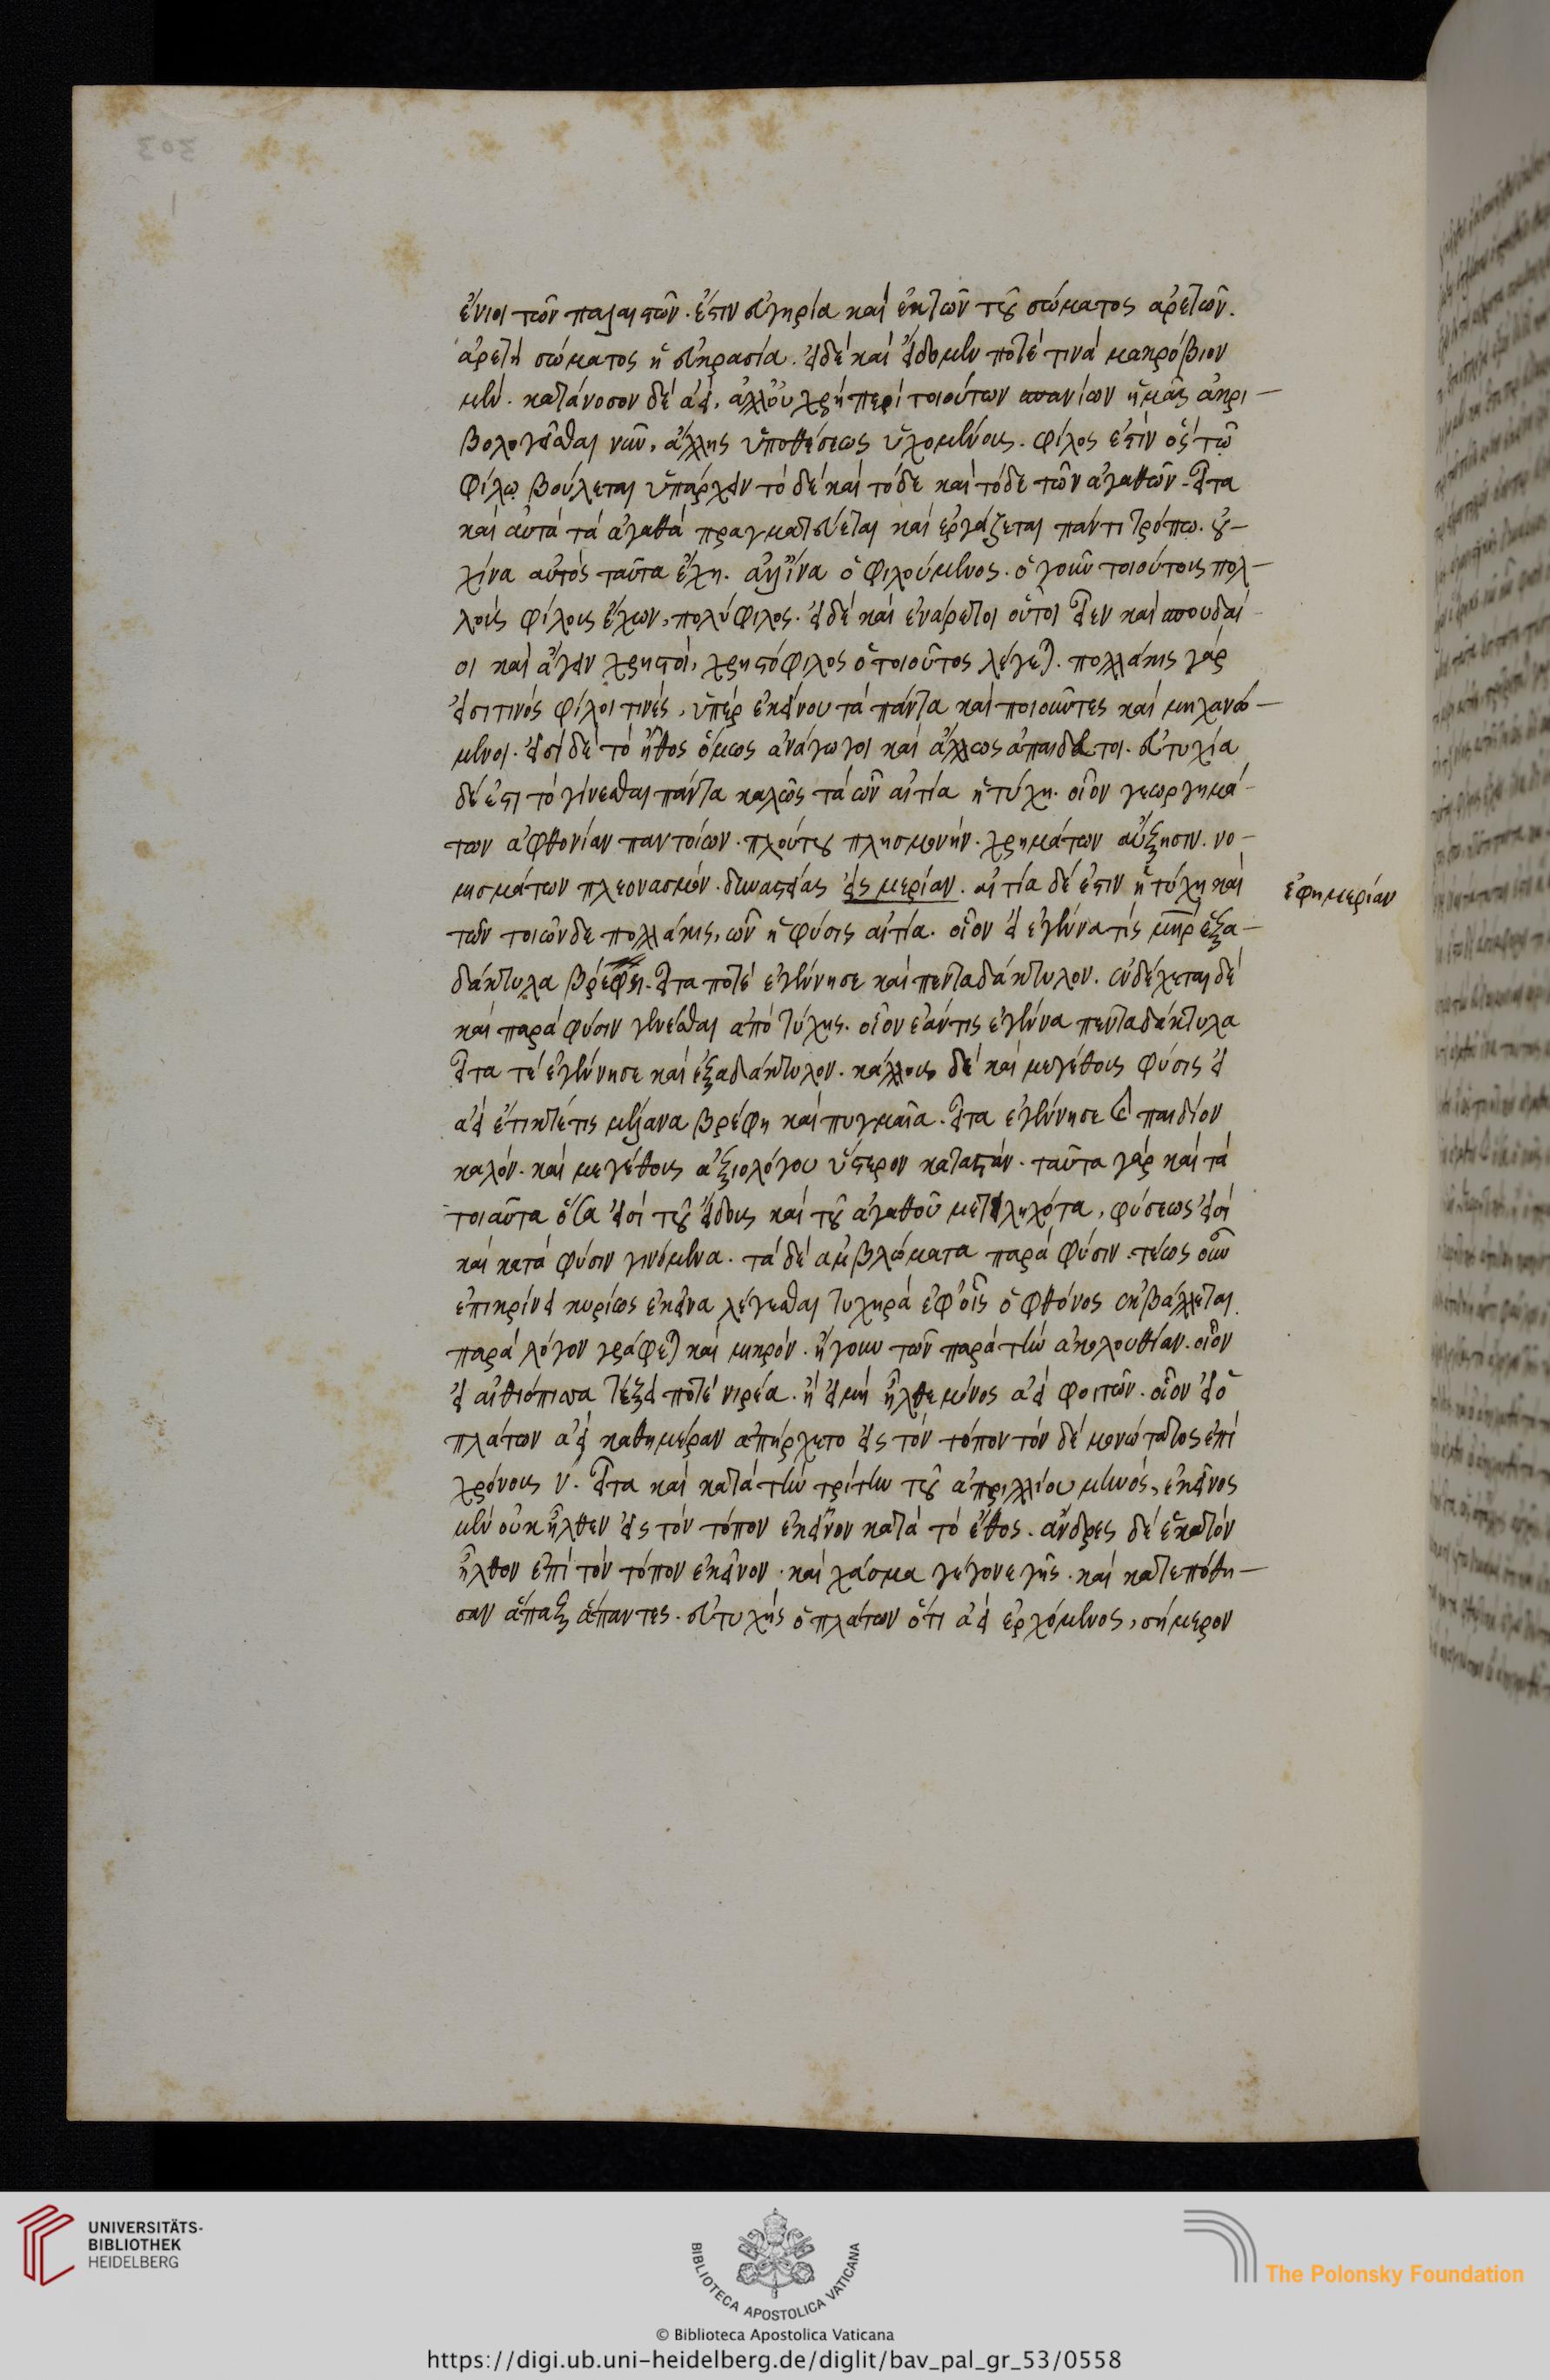 ἔνιοι τῶν παλαιστῶν. ἔστιν εὐγηρία καὶ ἐκ τῶν τοῦ σώματος ἀρετῶν.
ἀρετὴ σώματος ἡ εὐκρασία. εἰ δὲ καὶ εἴδομεν ποτέ τινα μακρόβιον
μὲν. κατάνοσον δὲ ἀεί. ἀλλ' οὐ χρὴ περὶ τοιούτων σπανίων ἡμᾶς ἀκρι-
βολογεῖσθαι νῦν, ἄλλης ὑποθέσεως ἐχομένους. φίλος ἐστὶν ὅς τῶ
φίλῳ βούλεται ὑπάρχειν τὸ δὲ καὶ τόδε καὶ τόδε τῶν ἀγαθῶν. εἶτα
καὶ αὐτὰ τὰ ἀγαθὰ πραγματεύεται καὶ ἐργάζεται παντὶ τρόπω. οὐ-
χ ἵνα αὐτὸς ταῦτα ἔχη. ἀλλ' ἵνα ὁ φιλούμενος. ὁ γοῦν τοιούτους πολ-
λοὺς φίλους ἔχων, πολύφιλος. εἰ δὲ καὶ ἐνάρετοι οὗτοι εἶεν καὶ σπουδαῖ-
οι καὶ ἄγαν χρηστοὶ, χρηστόφιλος ὁ τοιοῦτος λέγεται. πολλάκις γάρ
εἰσι τινὸς φίλοι τινὲς, ὑπὲρ ἐκείνου τὰ πάντα καὶ ποιοῦντες καὶ μηχανώ-
μενοι. εἰσὶ δὲ τὸ ἦθος ὅμως ἀνάγωγοι καὶ ἄλλως ἀπαίδευτοι. εὐτυχία
δέ ἐστι τὸ γίνεσθαι πάντα καλῶς τὰ ὧν αἰτία ἡ τύχη. οἷον γεωργημά-
των ἀφθονίαν παντοίων. πλούτου πλησμονήν. χρημάτων αὔξησιν. νο-
μισμάτων πλεονασμόν. δυναστείας εἰς μερίαν. αἰτία δέ ἐστιν ἡ τύχη καὶ
ἐφημερίαν
τῶν τοιῶνδε πολλάκις, ὧν ἡ φύσις αἰτία. οἷον εἰ ἐγέννα τίς μήτηρ ἑξα-
δάκτυλα βρέφη. εἶτα ποτὲ ἐγέννησε καὶ πενταδάκτυλον. ἐνδέχεται δὲ
καὶ παρὰ φύσιν γενέσθαι ἀπὸ τύχης. οἷον ἐάν τις ἐγέννα πενταδάκτυλα
εἶτα τέ ἐγέννησε καὶ ἑξαδάκτυλον. κάλλους δὲ καὶ μεγέθους φύσις εἰ
ἀεὶ ἔτικτέ τις μέλανα βρέφη καὶ πυγμαῖα. εἶτα ἐγέννησε παιδίον
καλόν. καὶ μεγέθους ἀξιολόγου ὕστερον καταστάν. ταῦτα γὰρ καὶ τὰ
τοιαῦτα ὅσα εἰσὶ τοῦ εἴδους καὶ τοῦ ἀγαθοῦ μετειληχότα, φύσεως εἰσὶ
καὶ κατὰ φύσιν γινόμενα. τὰ δὲ ἀμβλώματα παρὰ φύσιν. τέως οὖν
ἐπικρίνει κυρίως ἐκεῖνα λέγεσθαι τυχηρὰ ἐφ' οἷς ὁ φθόνος ἐκβάλλεται.
παρὰ λόγον γράφεται καὶ μικρόν. ἤγουν τῶν παρὰ τὴν ἀκολουθίαν. οἷον
εἰ αἰθιόπισσα τέξει ποτὲ νιρέα. ἢ εἰ μὴ ἦλθε μόνος ἀεὶ φοιτῶν. οἷον εἰ ὁ
πλάτων ἀεὶ καθημέραν ἀπήρχετο εἰς τὸν τόπον τὸν δὲ μονώτατος ἐπὶ
χρόνους ν. εἶτα καὶ κατὰ τὴν τρίτην τοῦ ἀπριλλίου μηνός, ἐκεῖνος
μὲν οὐκ ἦλθεν εἰς τὸν τόπον ἐκεῖνον κατὰ τὸ ἔθος. ἄνδρες δὲ ἑκατὸν
ἦλθον ἐπὶ τὸν τόπον ἐκεῖνον. καὶ χάσμα γέγονε γῆς. καὶ κατεπόθη-
σαν ἅπαξ ἅπαντες. εὐτυχὴς ὁ πλάτων ὅτι ἀεὶ ἐρχόμενος, σήμερον
303
UNIVERSITÄTS-
BIBLIOTHEK
HEIDELBERG
BIBLIOTECA APOSTOLICA VATICANA
The Polonsky Foundation
© Biblioteca Apostolica Vaticana
https://digi.ub.uni-heidelberg.de/diglit/bav_pal_gr_53/0558